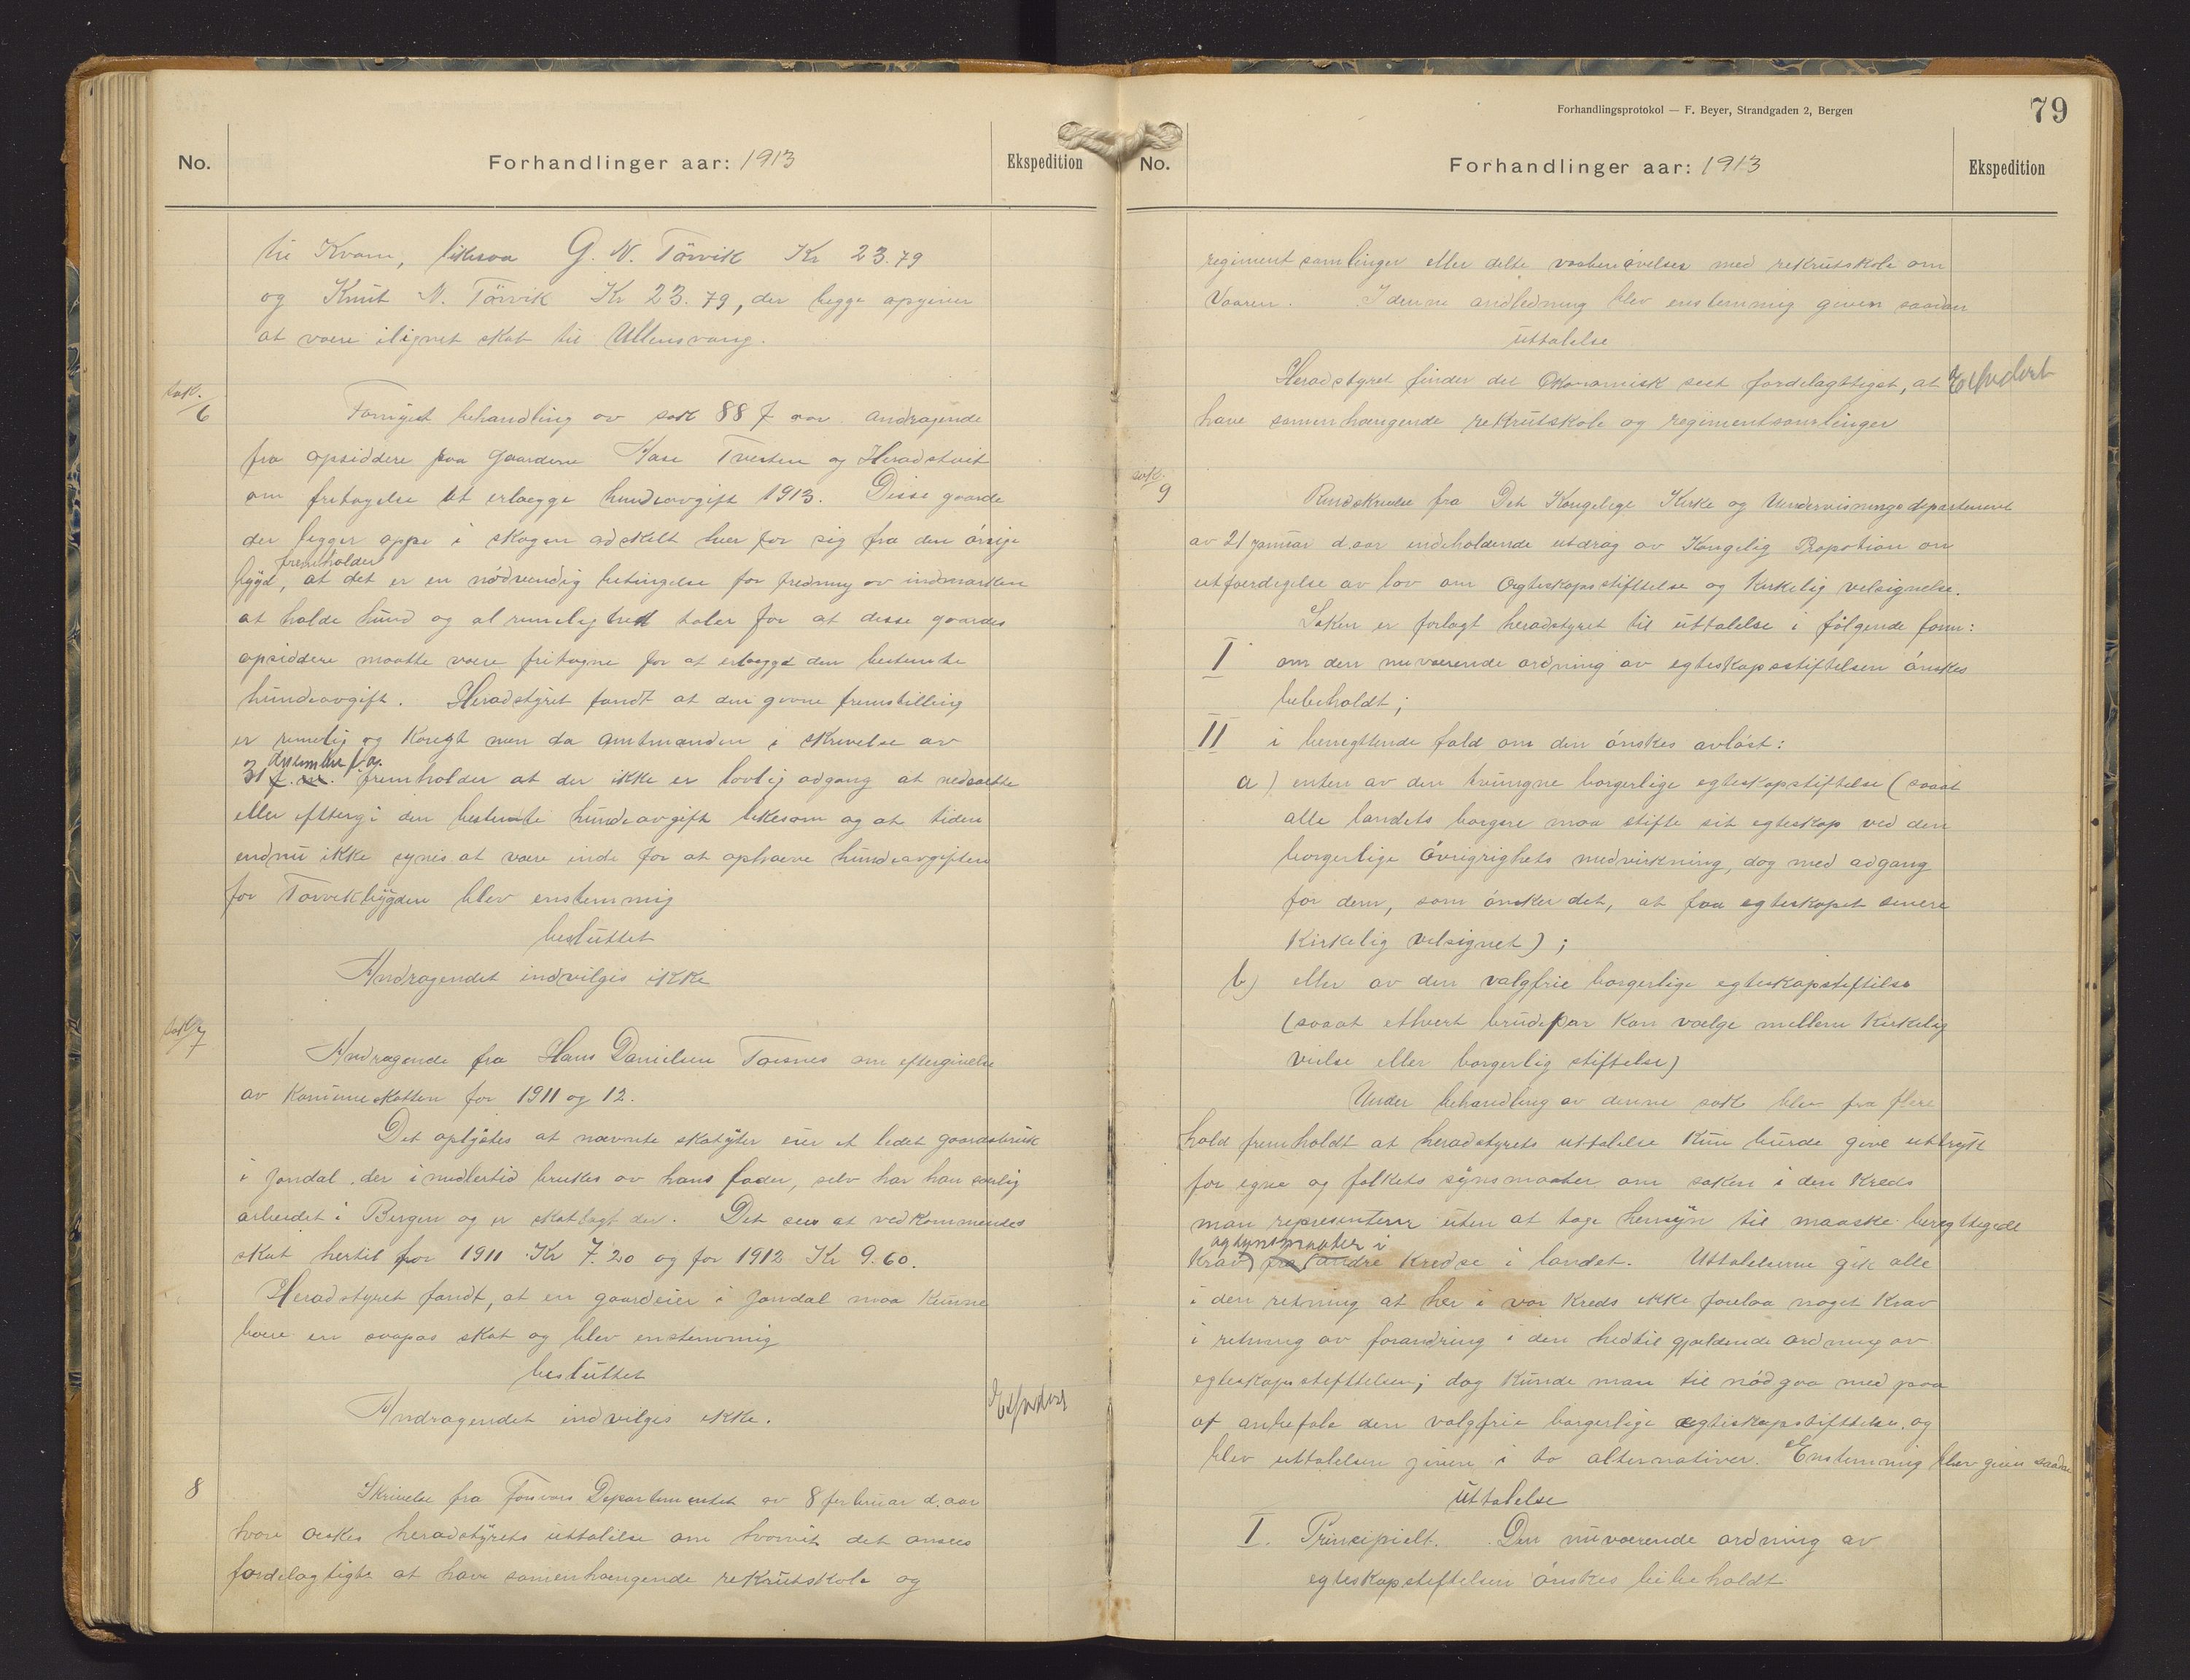 No.
Forhandlinger aar: 1913
Ekspedition
til Kvam, likesaa G. N. Törvik Kr 23.79
og Knut N. Törvik Kr 23.79, der begge opgiver
at være ilignet skat til Ullensvang.
Sak.
6
Fornyet behandling av sak 88 f aar andragende
fra opsiddere paa gaardene Kase Tveiten og Heradstveit
om fritagelse at erlægge hundeavgift 1913. Disse gaarde
der ligger oppe i skogen adskilt hver for sig fra den övrige
fremholder
bygd, at det er en nödvendig betingelse for fredning av indmarken
at holde hund og al rimelighed taler for at disse gaardes
opsiddere maatte være fritagne for at erlægge den bestemte
hundeavgift. Heradstyret fandt at den givne fremstilling
er rimelig og korregt men da amtmanden i skrivelse av
desember f. a.
31 f. m. fremholder at der ikke er lovlig adgang at nedsætte
eller eftergi den bestemte hundeavgift likesom og at tiden
endnu ikke synes at være inde for at ophæve hundeavgiften
for Torvikbygden blev enstemmig
besluttet
Andragendet indvilges ikke
Sak
7
Andragende fra Hans Danielsen Torsnes om eftergivelse
av Komuneskatten for 1911 og 12.
Det oplystes at nævnte skatyter eier et lidet gaardsbruk
i Jondal, der imidlertid brukes av hans fader, selv har han særlig
arbeidet i Bergen og er skatlagt der. Det sees at vedkommendes
skat hertil for 1911 Kr 7.20 og for 1912 Kr 9.60.
Heradstyret fandt, at en gaardeier i Jondal maa kunne
bære en saapas skat og blev enstemmig
besluttet
Andragendet indvilges ikke.
Expedert
8
Skrivelse fra Forsvars Departementet av 8 februar d. aar
hvori æskes heradstyrets uttalelse om hvorvit det ansees
fordelagtigts at have samenhængende rekrutskole og
Forhandlingsprotokol — F. Beyer, Strandgaden 2, Bergen
79
No.
Forhandlinger aar: 1913
Ekspedition
regimentsamlinger eller delte vaabenövelser med rekrutskole om
Vaaren. I denne andledning blev enstemmig given saadan
uttalelse
Heradstyret finder det Ökonomisk sect fordelagtigst, at
Expedert
have samenhængende rekrutskole og regimentsamlinger
sak.
9
Rundskrivelse fra Det Kongelige Kirke og Undervisningsdepartement
av 21 januar d. aar indeholdende utdrag av Kongelig Propotion om
utfærdigelse av lov om Ægteskapsstiftelse og Kirkelig velsignelse.
Saken er forlagt heradstyret til uttalelse i fölgende form:
I om den nuværende ordning av egteskapsstiftelsen önskes
bibeholdt;
II i benegttende fald om den önskes avlöst:
a) enten av den tvungne borgerlige egteskapstiftelse (saaat
alle landets borgere maa stifte sit egteskap ved den
borgerlige övrigrighets medvirkning, dog med adgang
for dem, som önsker det, at faa egteskapet senere
kirkelig velsignet);
b) eller av den valgfrie borgerlige egteskapstiftelse
(saaat ethvert brudepar kan vælge mellem kirkelig
vielse eller borgerlig stiftelse)
Under behandling av denne sak blev fra flere
hold fremholdt at heradstyrets uttalelse kun burde give uttrykk
for egne og folkets synsmaater om saken i den kreds
man representerer uten at tage hensyn til maaske beregttigede
og synsmaater i
krav fra andre kredse i landet. Uttalelserne gik alle
i den retning at her i vor kreds ikke forelaa noget krav
i retning av forandring i den hedtil gjældende ordning av
egteskapsstifttelsen; dog kunde man til nöd gaa med paa
at anbefale den valgfrie borgerlige ægteskapsstifttelse og
blev uttalelsen given i to alternativer. Enstemmig blev given saadan
uttalelse
I. Principielt. Den nuværende ordning av
egteskapstiftelsen önskes bibeholdt